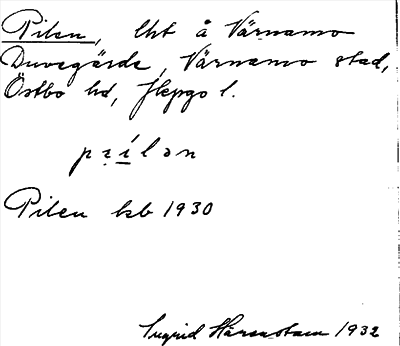 Pilen, lht å Värnamo
Duvegärde, Värnamo stad,
Östbo hd, Jkpgo l.
pạílən
Pilen kb 1930
Ingrid 1932